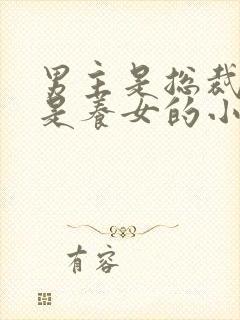 男主是总裁
是养女的小
有容